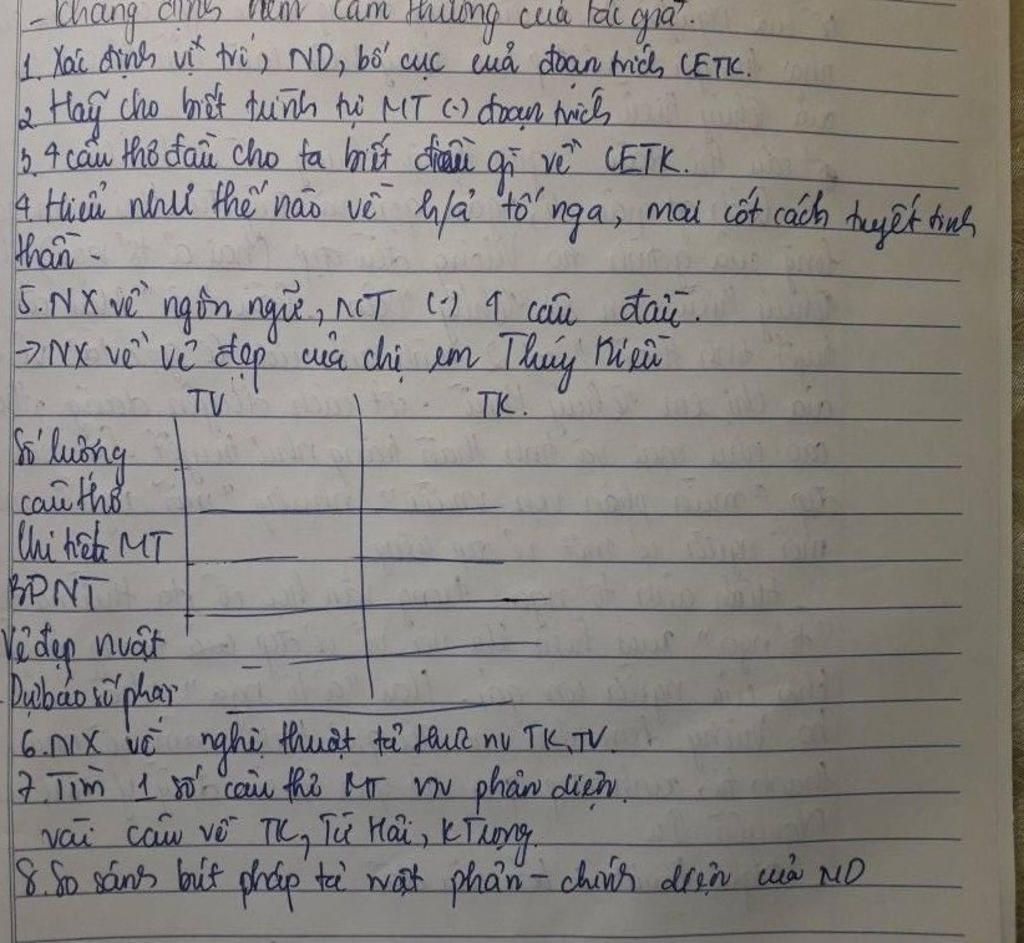 - Khẳng định niềm cảm thương của tác giả.
1. Xác định vị trí, ND, bố cục của đoạn trích CETK.
2 Hãy cho biết trình tự MT (-) đoạn trích
3. 4 câu thơ đầu cho ta biết điều gì về CETK.
4. Hiểu như thế nào về h/ả tố nga, mai cốt cách tuyết tinh
thần -
5. NX về ngôn ngữ, NT (-) 4 câu đầu.
→ NX về vẻ đẹp của chị em Thúy Kiều
TV TK.
Số lượng
câu thơ
Chi tiết MT
BPNT
Vẻ đẹp nvật
Dự báo số phận
6. NX về nghệ thuật tả thực nv TK, TV.
7. Tìm 1 số câu thơ MT nv phản diện.
vài câu về TK, Từ Hải, KTrọng.
8. So sánh bút pháp tả nvật phản - chính diện của ND